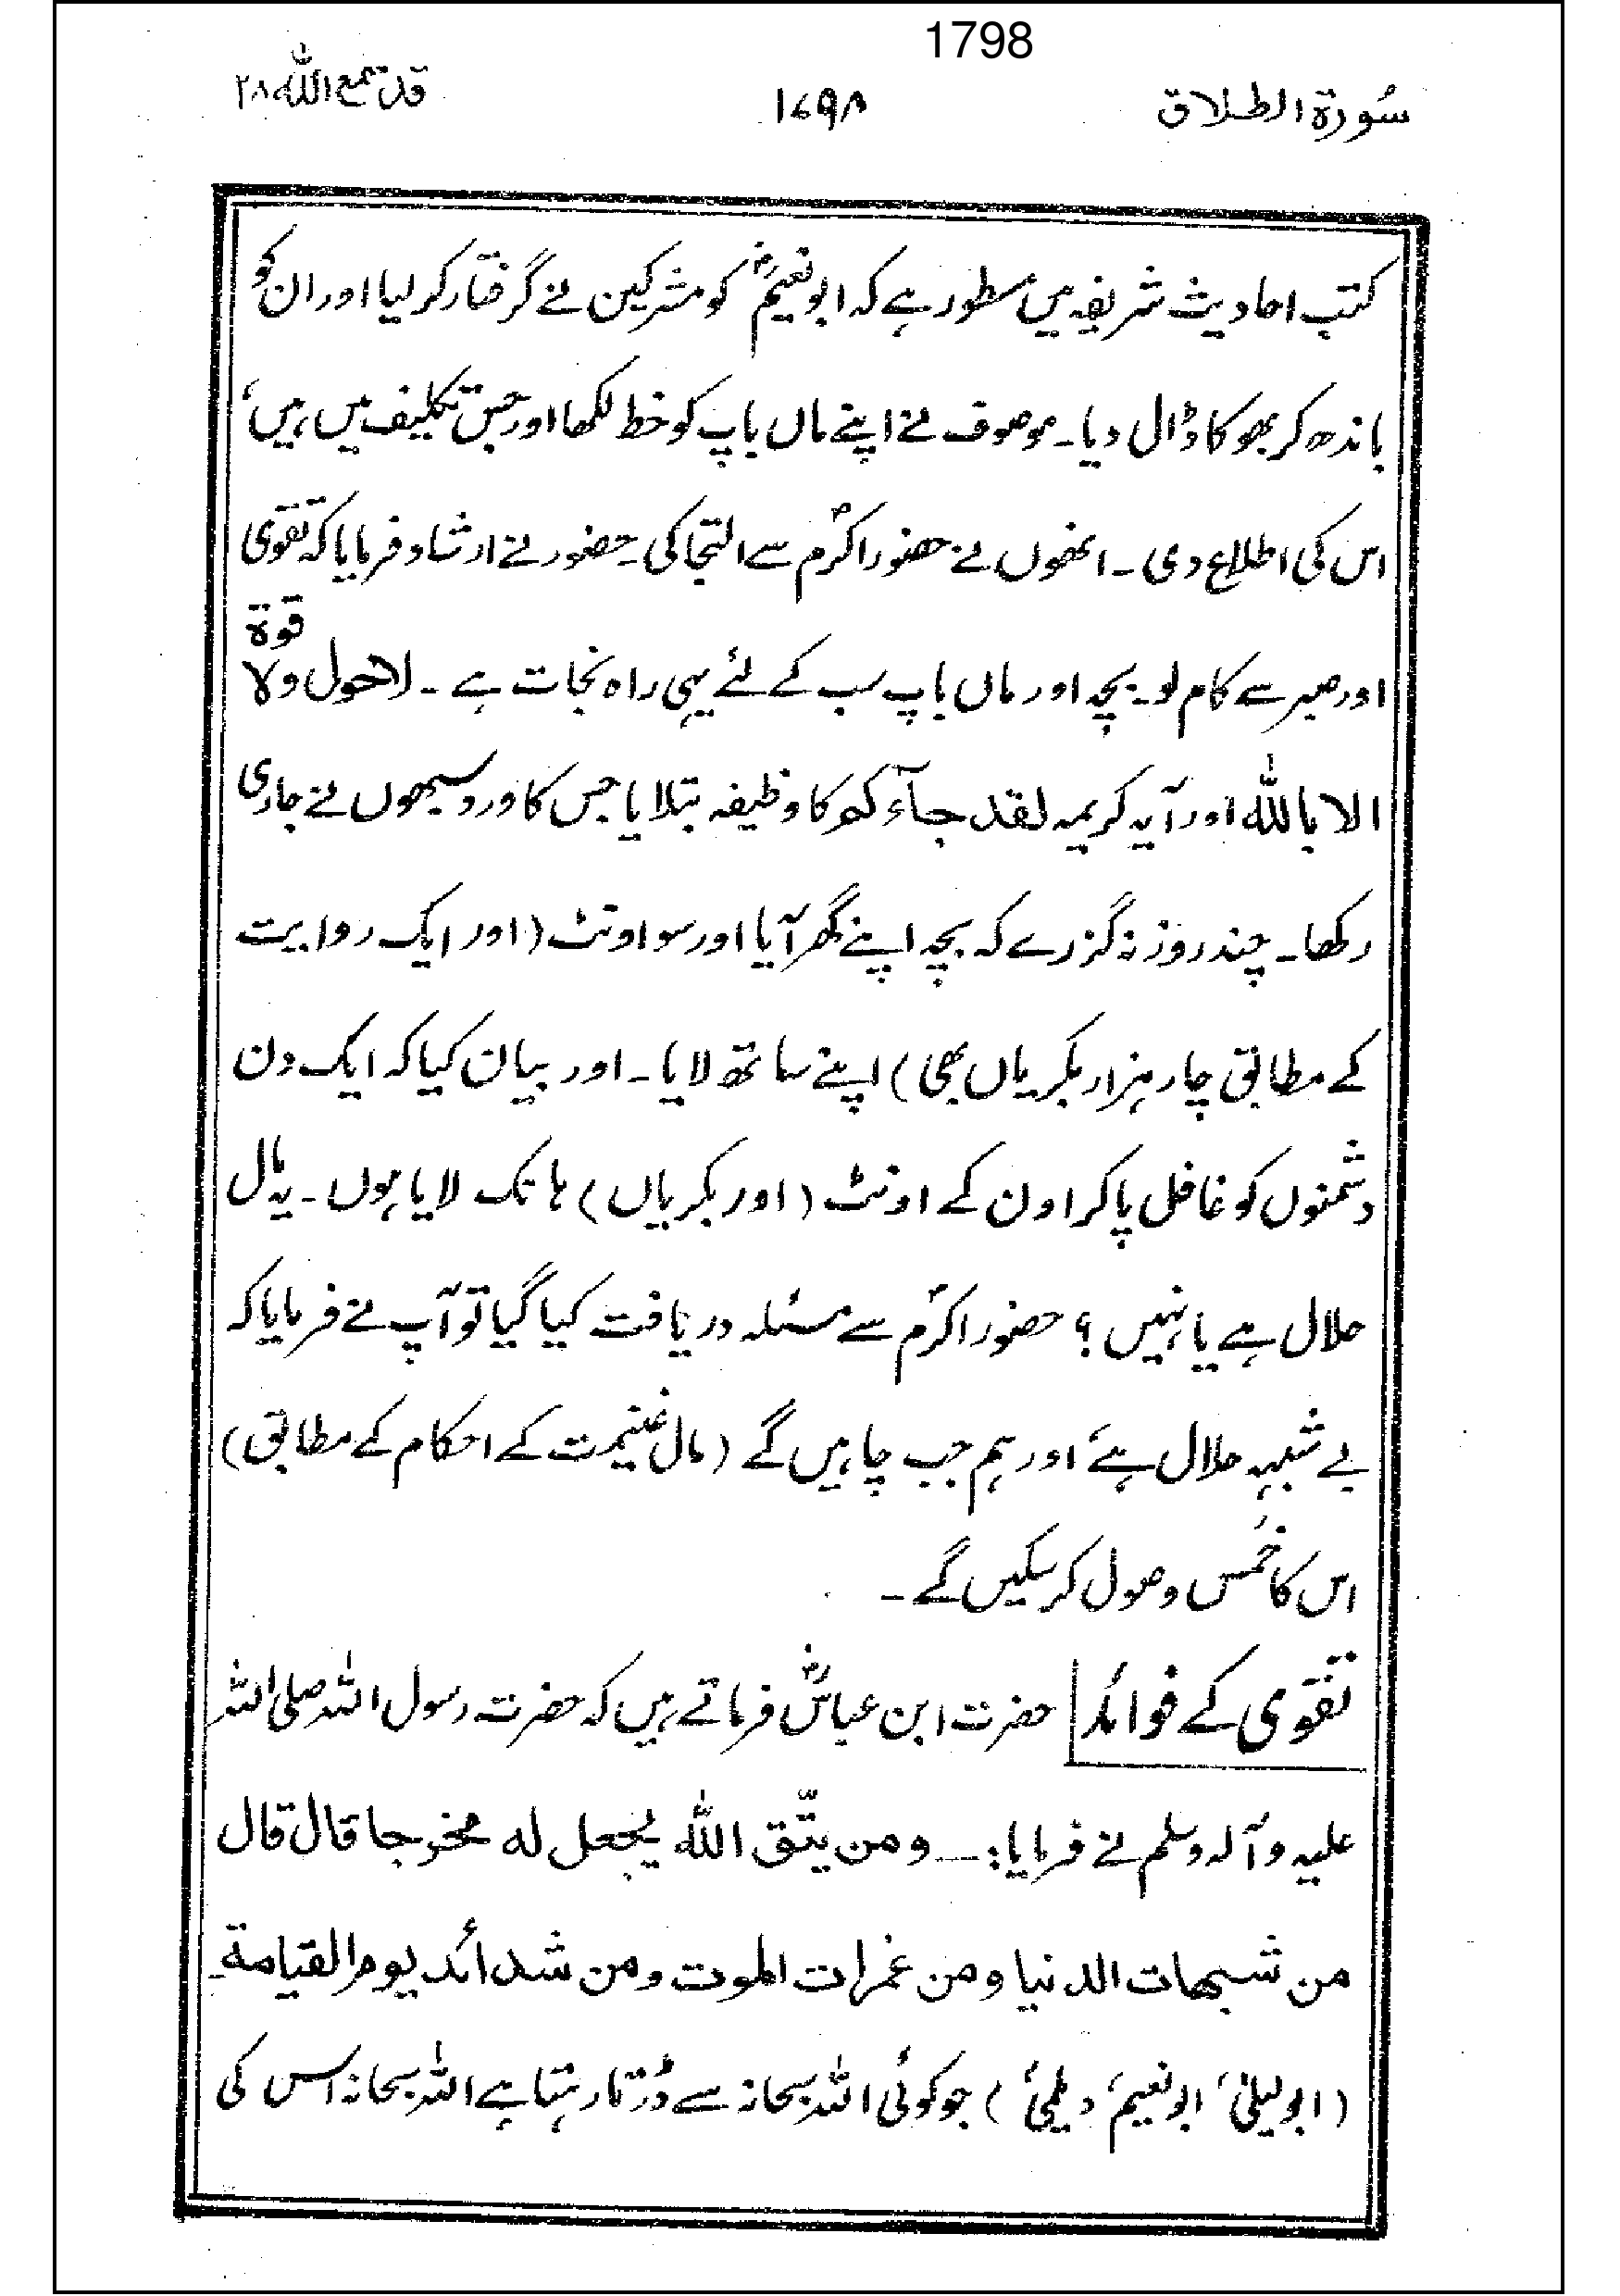 1798
سُورة الطلاق ۱۷۹۸ قد سمع اللہ ۲۸
کتب احادیث شریفہ میں مسطور ہے کہ ابونعیمؓ کو مشرکین نے گرفتار کر لیا اور ان کو
باندھ کر بھوکا ڈال دیا۔ موصوف نے اپنے ماں باپ کو خط لکھا اور جس تکلیف میں ہیں،
اس کی اطلاع دی۔ انھوں نے حضور اکرمؐ سے التجا کی۔ حضور نے ارشاد فرمایا کہ تقوی
اور صبر سے کام لو۔ بچہ اور ماں باپ سب کے لئے یہی راہ نجات ہے۔ لاحول ولا قوة
الا باللہ اور آیہ کریمہ لقد جآءکم کا وظیفہ بتلایا جس کا ورد سبھوں نے جاری
رکھا۔ چند روز نہ گزرے کہ بچہ اپنے گھر آیا اور سو اونٹ (اور ایک روایت
کے مطابق چار ہزار بکریاں بھی) اپنے ساتھ لایا۔ اور بیان کیا کہ ایک دن
دشمنوں کو غافل پا کر اون کے اونٹ (اور بکریاں) ہانک لایا ہوں۔ یہ مال
حلال ہے یا نہیں؟ حضور اکرمؐ سے مسئلہ دریافت کیا گیا تو آپ نے فرمایا کہ
بے شبہہ حلال ہے، اور ہم جب چاہیں گے (مال غنیمت کے احکام کے مطابق)
اس کا خُمس وصول کر سکیں گے۔
تقوی کے فوائد حضرت ابن عباسؓ فرماتے ہیں کہ حضرت رسول اللہ صلی اللہ
علیہ وآلہ وسلم نے فرمایا:۔ ومن یتّق اللہ یجعل لہ مخرجا قال قال
من شبهات الدنیا ومن غمرات الموت ومن شدائد یوم القیامة۔
(ابولیلیٰ، ابونعیم، دیلمی) جو کوئی اللہ سبحانہ سے ڈرتا رہتا ہے اللہ سبحانہ اس کی